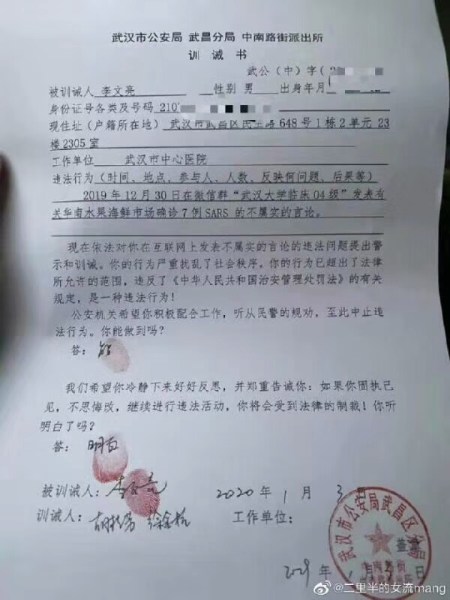 武汉市公安局 武昌分局 中南路街派出所
训 诫 书
武公(中)字(2
被训诫人 李文亮 性别 男 出身年月
身份证号各类及号码 210
现住址(户籍所在地) 武汉市武昌区民主路648号1栋2单元23
楼2305室
工作单位 武汉市中心医院
违法行为(时间、地点、参与人、人数、反映何问题、后果等)
2019年12月30日在微信群“武汉大学临床04级”发表有
关华南水果海鲜市场确诊7例SARS的不属实的言论。
现在依法对你在互联网上发表不属实的言论的违法问题提出警
示和训诫。你的行为严重扰乱了社会秩序。你的行为已超出了法律
所允许的范围,违反了《中华人民共和国治安管理处罚法》的有关
规定,是一种违法行为!
公安机关希望你积极配合工作,听从民警的规劝,至此中止违
法行为。你能做到吗?
答: 能
我们希望你冷静下来好好反思,并郑重告诫你:如果你固执己
见,不思悔改,继续进行违法活动,你将会受到法律的制裁!你听
明白了吗?
答: 明白
被训诫人: 李文亮 2020年1月3日
训诫人: 工作单位:
武汉市公安局武昌区分局
年 月
@二里半的女流mang